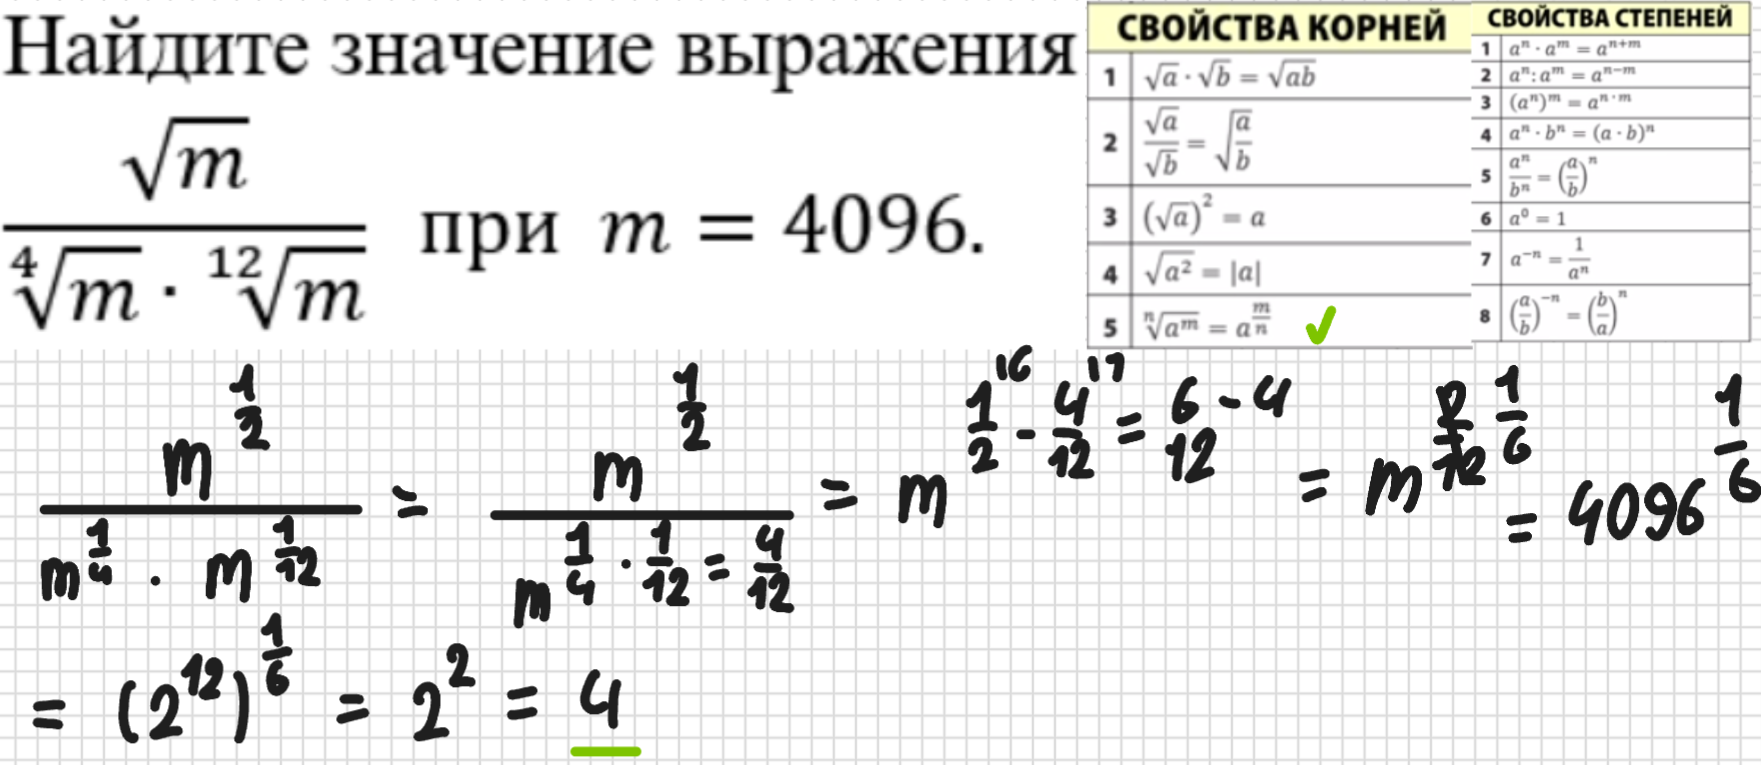 Найдите значение выражения
√m / (⁴√m · ¹²√m) при m = 4096.
СВОЙСТВА КОРНЕЙ
1 √a · √b = √ab
2 √a/√b = √(a/b)
3 (√a)² = a
4 √a² = |a|
5 ⁿ√aᵐ = a^(m/n) ✓
СВОЙСТВА СТЕПЕНЕЙ
1 aⁿ · aᵐ = aⁿ⁺ᵐ
2 aⁿ : aᵐ = aⁿ⁻ᵐ
3 (aⁿ)ᵐ = aⁿ·ᵐ
4 aⁿ · bⁿ = (a · b)ⁿ
5 aⁿ/bⁿ = (a/b)ⁿ
6 a⁰ = 1
7 a⁻ⁿ = 1/aⁿ
8 (a/b)⁻ⁿ = (b/a)ⁿ
m^(1/2) / (m^(1/4) · m^(1/12)) = m^(1/2) / m^(1/4 · 1/12 = 4/12) = m^(1/2 \6 - 4/12 \1 = (6 - 4)/12) = m^(2/12 1/6) = 4096^(1/6)
= (2^12)^(1/6) = 2² = 4